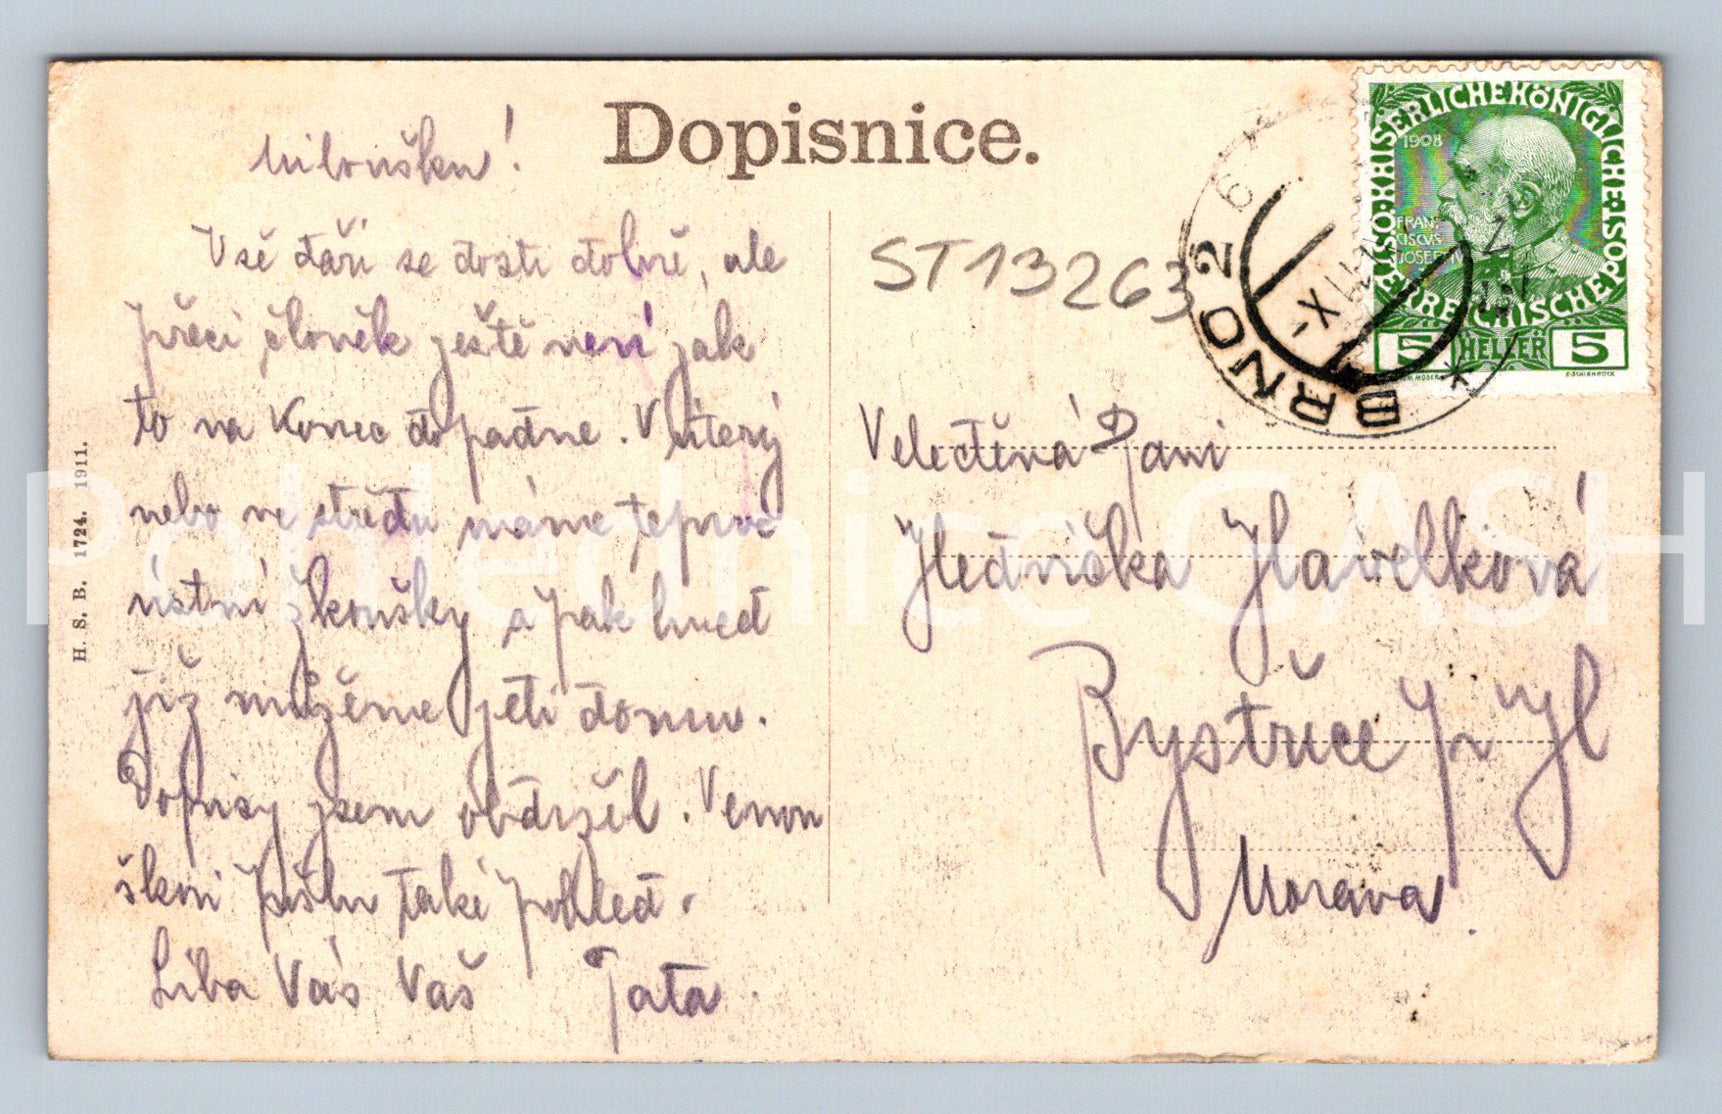 Dopisnice.
Miloušku!
Vše daří se dosti dobře, ale
přeci člověk ještě neví jak
to na konec dopadne. V úterý
nebo ve středu máme teprvé
ústní zkoušky a pak hned
již můžeme jeti domu.
Dopisy jsem obdržel. Venou
škovi píšu také pohled.
Líbá Vás Váš Táta.
H. S. B. 1724. 1911.
ST13263
BRNO 2
KAISERLICHE KÖNIGLICHE ÖSTERREICHISCHE POST
1908
FRANCISCVS
JOSEPH I
5 HELLER 5
Velectěná Paní
Hedvička Havelková
Bystřice p H
Morava.
Pohlednice CASH